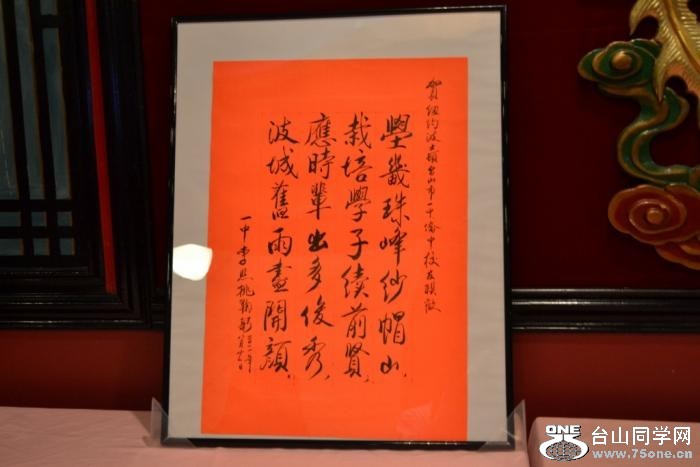 賀紐約波士頓台山市一中僑中校友聯歡
壆畿珠峰紗帽山，
栽培學子續前賢，
應時輩出多俊秀，
波城舊雨盡開顏，
一中
鞠躬
ONE
台山同学网
www.75one.cn